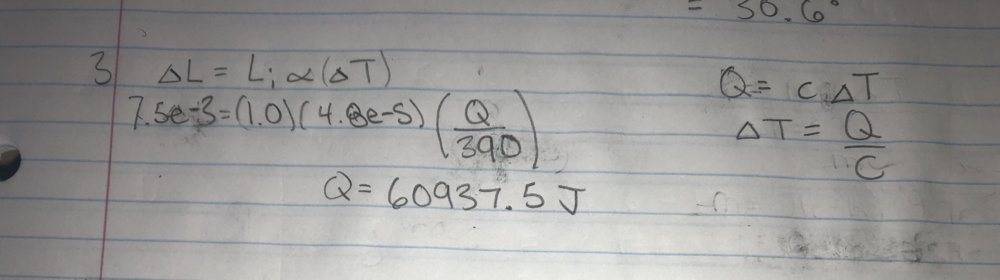 = 30.6°
3 ΔL = Li α(ΔT)
7.5e-3=(1.0)(4.8e-5)(Q/390)
Q= 60937.5 J
Q= cΔT
ΔT = Q/C